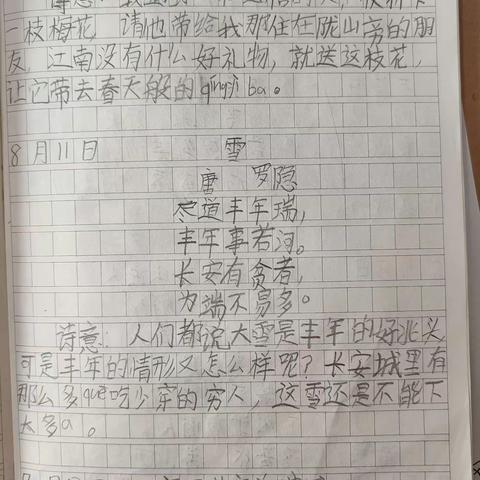 一枝梅花,请他带给我那住在陇山旁的朋
友,江南没有什么好礼物,就送这枝花,
让它带去春天般的qíngyì ba。
8月11日 雪
唐 罗隐
尽道丰年瑞,
丰年事若河。
长安有贪者,
为端不易多。
诗意:人们都说大雪是丰年的好兆头
可是丰年的情形又怎么样呢?长安城里有
那么多quē吃少穿的穷人,这雪还是不能下
太多a。